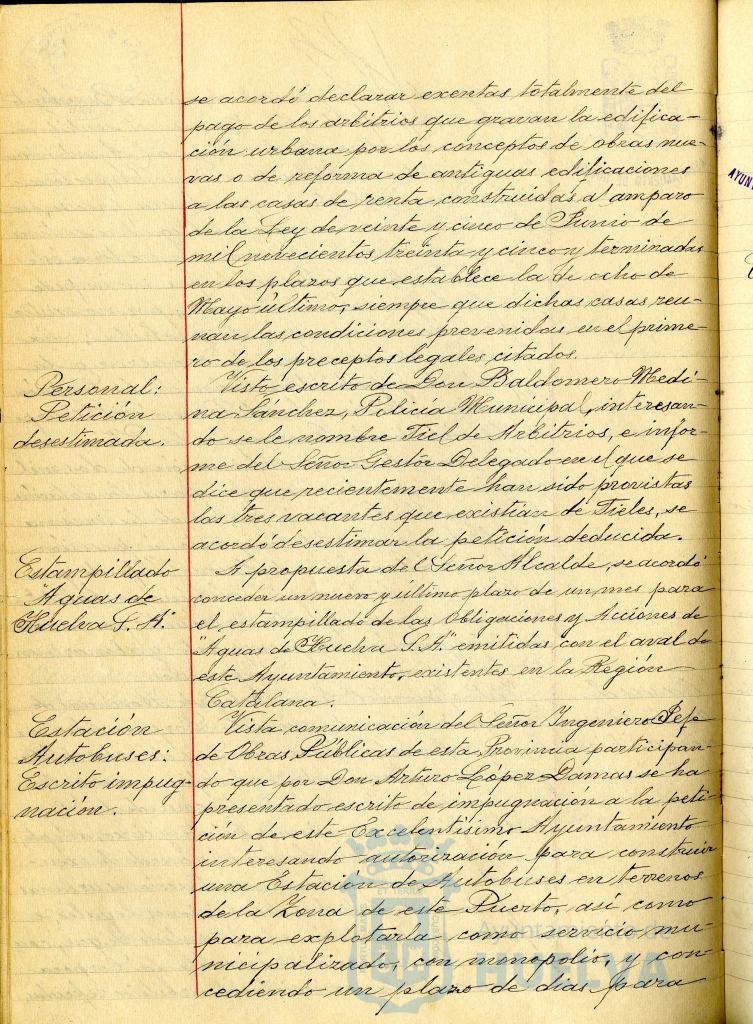 se acordó declarar exentas totalmente del
pago de los arbitrios que gravan la edifica-
ción urbana por los conceptos de obras nue-
vas o de reforma de antiguas edificaciones
a las casas de renta construidas al amparo
de la Ley de veinte y cinco de Junio de
mil novecientos treinta y cinco y terminadas
en los plazos que establece la de ocho de
Mayo último, siempre que dichas casas reu-
nan las condiciones prevenidas en el prime-
ro de los preceptos legales citados.
Personal:
Petición
desestimada.
Visto escrito de Don Baldomero Medi-
na Sánchez, Policía Municipal, interesan-
do se le nombre Fiel de Arbitrios, e infor-
me del Señor Gestor Delegado en el que se
dice que recientemente han sido provistas
las tres vacantes que existian de Fieles, se
acordó desestimar la petición deducida.
Estampillado
"Aguas de
Huelva S. A."
A propuesta del Señor Alcalde, se acordó
conceder un nuevo y último plazo de un mes para
el estampillado de las Obligaciones y Acciones de
"Aguas de Huelva S.A." emitidas con el aval de
este Ayuntamiento, existentes en la Región
Catalana.
Estación
Autobuses:
Escrito impug-
nación.
Vista comunicación del Señor Ingeniero Jefe
de Obras Públicas de esta Provincia participan-
do que por Don Arturo López Damas se ha
presentado escrito de impugnación a la peti-
ción de este Excelentísimo Ayuntamiento
interesando autorización para construir
una Estación de Autobuses en terrenos
de la Zona de este Puerto, así como
para explotarla como servicio mu-
nicipalizado, con monopolio, y con-
cediendo un plazo de dias para
HUELVA
AYUN